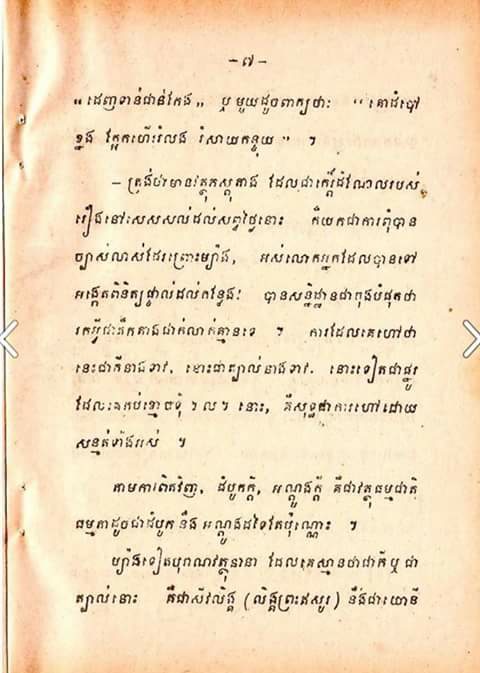 – ៧ –
“ ដេញទាន់ជាន់កែង „ ឬ មួយដូចពាក្យថា: “ គោដំបៅ
ខ្នង ក្អែកហើររំលង រំសាយកន្ទុយ ” ។
– ត្រង់ប៉ះមានវត្ថុភស្តុតាង ដែលជាកេរ្តិ៍ដំណែលរបស់
រឿងនៅសេសសល់ដល់សព្វថ្ងៃនោះ ក៏យកជាការពុំបាន
ច្បាស់លាស់ដែរព្រោះម្យ៉ាង, អស់លោកអ្នកដែលបានទៅ
អង្កេតពិនិត្យផ្ទាល់ដល់កន្លែង បានសន្និដ្ឋានជាកុងបំផុតថា
រកអ្វីជាតឹកតាងជាក់លាក់គ្មានទេ ។ ការដែលគេហៅថា
នេះជាក្តីនាងទាវ, ខោះជាត្បាល់នាងទាវ. នោះទៀតជាផ្នូរ
ដែលគេកប់ខ្មោចទុំ ។ ល ។ នោះ, គឺសុទ្ធជាការហៅដោយ
សន្មត់ទាំងអស់ ។
តាមការពិតវិញ, ដំបូកក្តី, អណ្តូងក្តី គឺជាវត្ថុធម្មជាតិ
ធម្មតាដូចជាដំបូក នឹង អណ្តូងដទៃតែប៉ុណ្ណោះ ។
ប្យ៉ាងទៀតបុរាណវត្ថុនានា ដែលគេស្មានថាជាក្តី ឬ ជា
ត្បាល់នោះ គឺជាសិវលិង្គ (លិង្គព្រះឥសូរ) នឹងជាយោនី